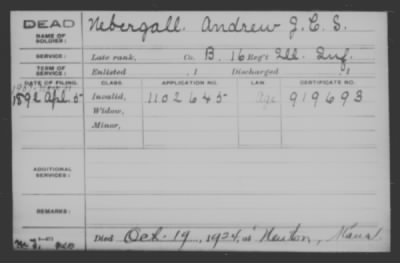 DEAD Nebergall. Andrew J. C. S.
NAME OF SOLDIER:
SERVICE: Late rank, Co. B. 16 Reg't Ill. Inf.
TERM OF SERVICE: Enlisted , 1 Discharged , 1
DATE OF FILING. CLASS. APPLICATION NO. LAW. CERTIFICATE NO.
1892 Apl. 5 Invalid, 1102645 Age 919693
Widow,
Minor,
ADDITIONAL SERVICES:
REMARKS:
3-471
Died Oct. 19, 1924, at Newton, Kans.